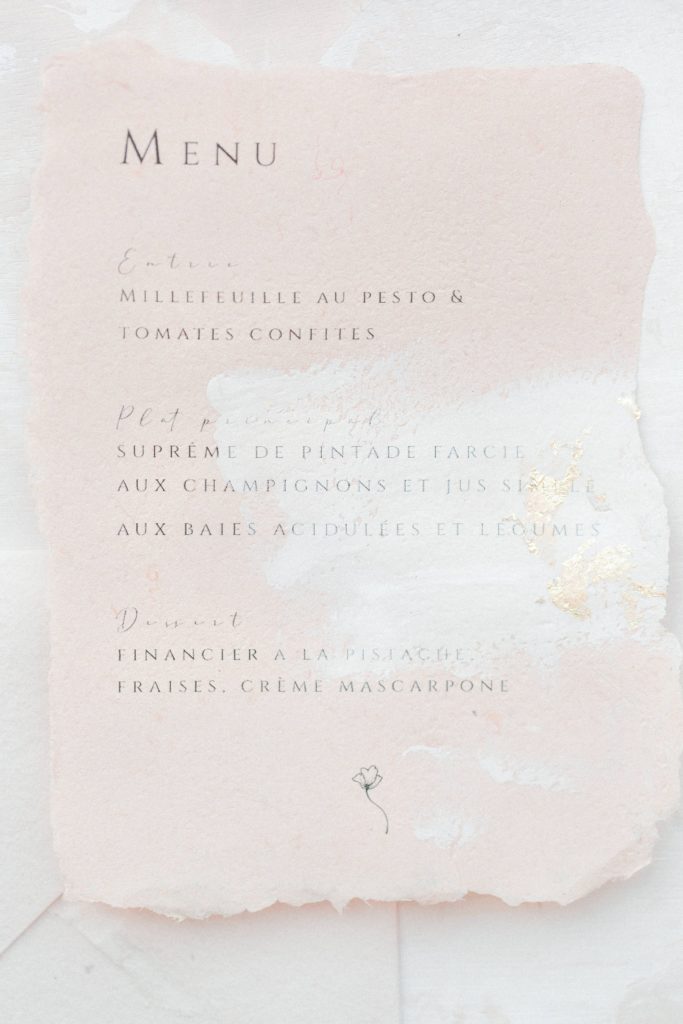 Menu
Entrée
Millefeuille au pesto &
tomates confites
Plat principal
Supréme de pintade farcie
aux champignons et jus
aux baies acidulées et legumes
Dessert
Financier a la pistache,
fraises, crème mascarpone